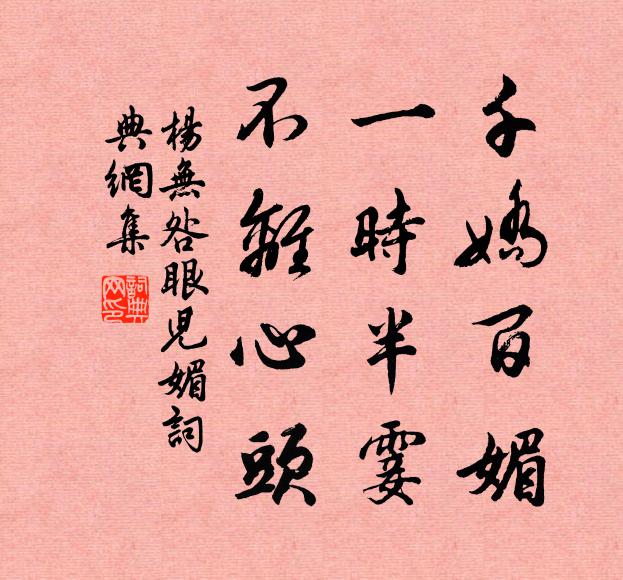 千嬌百媚
一時半霎
不離心頭
楊無咎眼兒媚詞
典網集
詞典網印